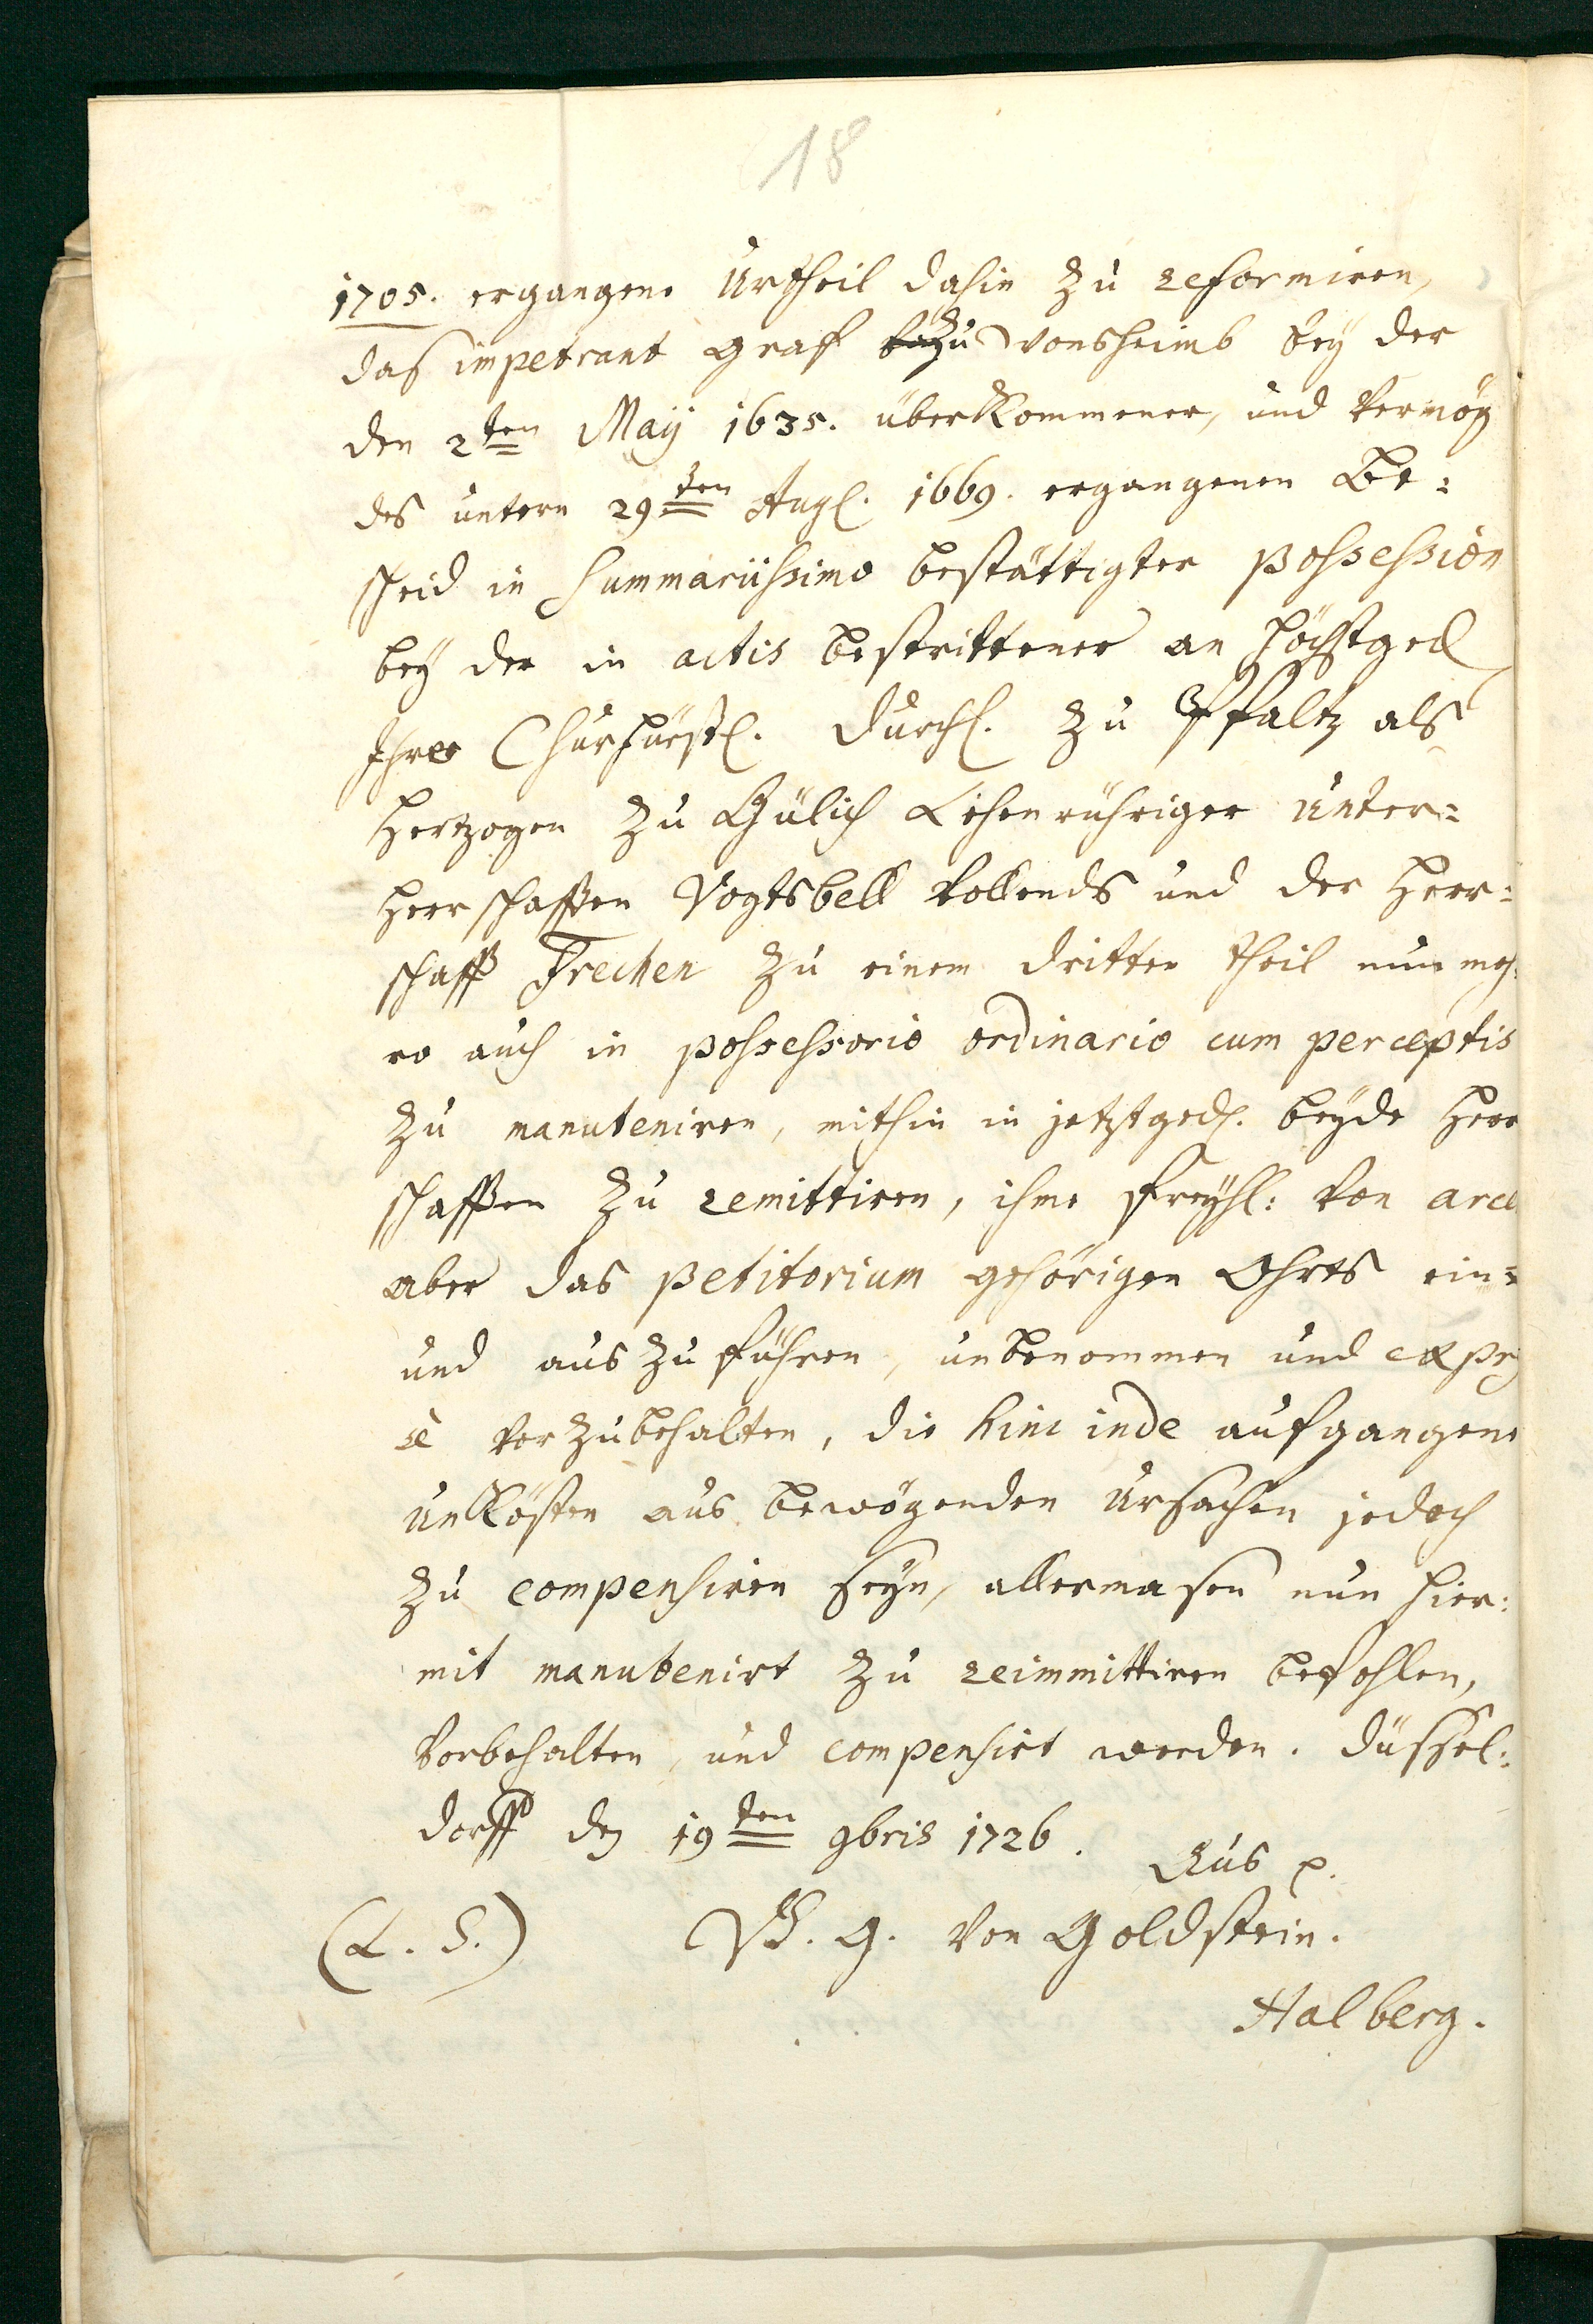 18
1705. ergangene Urtheil dahin zu reformiren,
das impetrant Graf zu Vonsheimb bey der
den 2ten Maij 1635. überkommener, und vermög
des untern 29ten Aug. 1669. ergangenen Be=
scheid in summariissimo bestättigter possession
bey der in actis bestrittener an höchstged
Ihro Churfürstl. Durchl. zu Pfaltz als
Hertzogen zu Gülich Lehenrühriger Unter=
herrschafften Vogtsbell vollends und der Herr=
schafft Frechen zu einem dritten theil nunmeh=
ro auch in possessorio ordinario cum perceptis
zu manuteniren, mithin in jetztged. beyde Herr
schafften zu remittiren, ihme Freyh: von arce
aber das petitorium gehörigen Ohrts ein=
und auszuführen, unbenommen und expres
sè vorzubehalten, die hinc inde aufgangene
Unkösten aus bewögenden Ursachen jedoch
zu compensiren seyn, allermasen nun hier=
mit manutenirt zu reimmittiren befohlen,
vorbehalten, und compensirt werden. Düssel=
dorff den 19ten 9bris 1726.
Aus p.
(L. S.) G. von Goldstein.
Halberg.